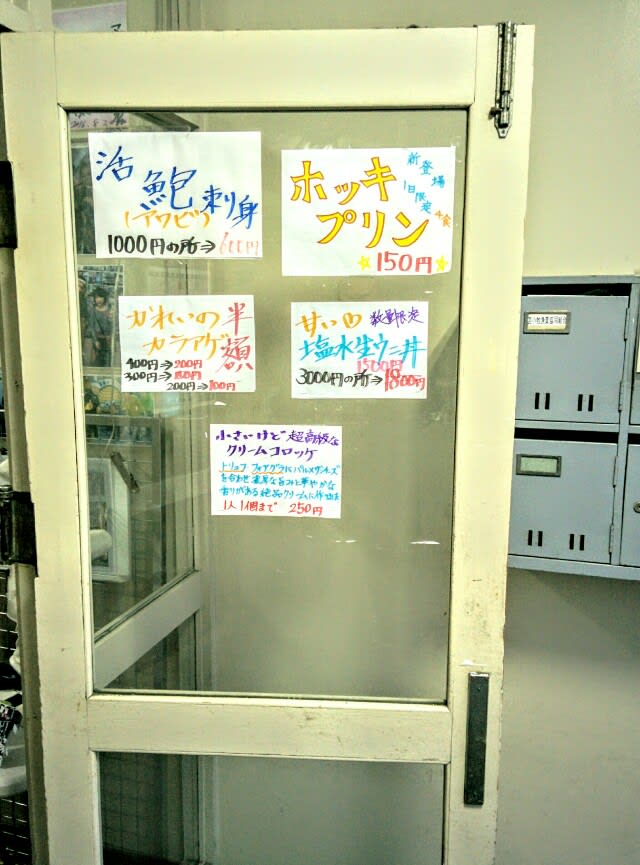 活 鮑 刺身
(アワビ)
1000円の所⇒600円
ホッキ
プリン
新登場
150円
かれいの
カラアゲ
半額
400円⇒200円
300円⇒150円
200円⇒100円
甘い 数量限定
塩水生ウニ丼
1500円
3000円の所⇒1800円
小さいけど超高級な
クリームコロッケ
トリュフ フォアグラにパルメザンチーズ
を合わせ濃厚な旨みと華やかな
香りがある絶品クリームに
1人1個まで 250円